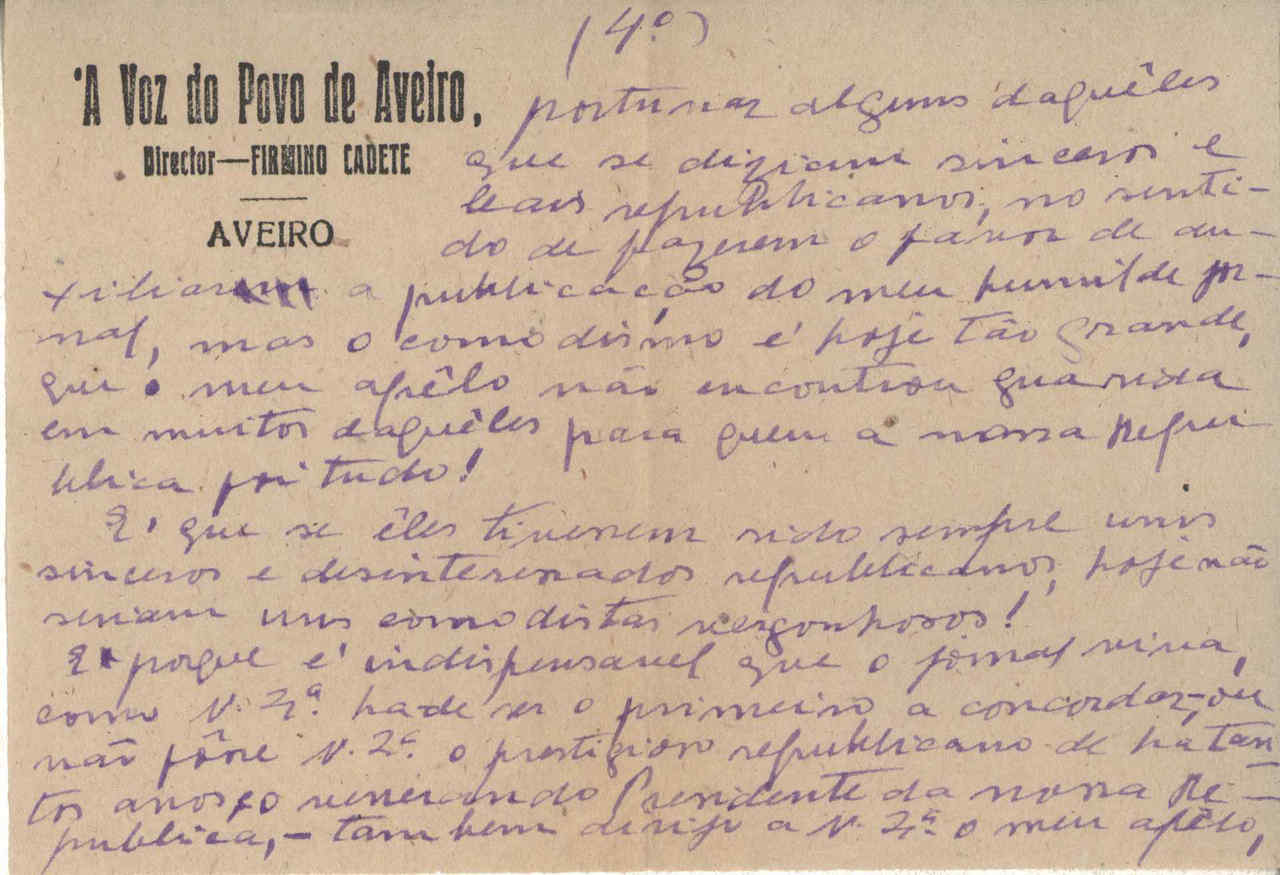 (4.º)
"A Voz do Povo de Aveiro,
Director—FIRMINO CADETE
AVEIRO
portunar alguns daquêles
que se diziam sinceros e
leais republicanos, no senti-
do de fazerem o favor de au-
xiliarem a publicação do meu humilde jor-
nal, mas o comodismo é hoje tão grande,
que o meu apêlo não encontrou guarida
em muitos daquêles para quem a nossa Repu
blica foi tudo!
E' que se êles tivessem sido sempre uns
sinceros e desinteressados republicanos, hoje não
seriam uns comodistas vergonhosos!
E porque é indispensavel que o jornal viva,
como V. Ex.ª hade ser o primeiro a concordar,-ou
não fôsse V. Ex.ª o prestigioso republicano de ha tan
tos anos, e o venerando Presidente da nossa Re-
publica,- tambem dirijo a V. Ex.ª o meu apêlo,